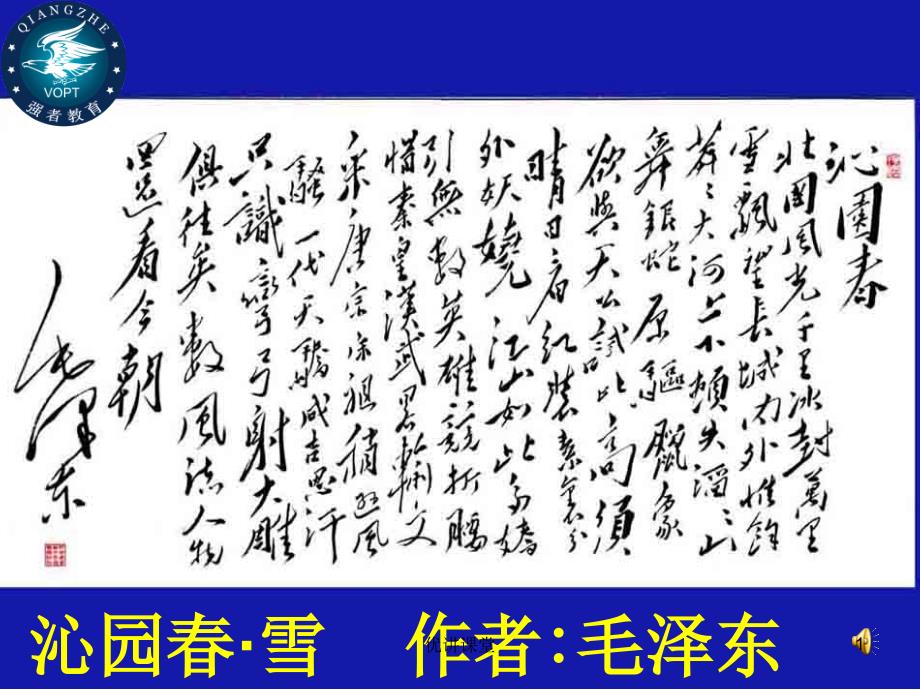 QIANGZHE
VOPT
强者教育
沁園春
北國風光千里冰封萬里
雪飄望長城內外惟餘
莽〻大河上下頓失滔〻山
舞銀蛇原驅臘象
欲與天公試比高須
晴日看紅裝素裹分
外妖嬈江山如此多嬌
引無數英雄競折腰
惜秦皇漢武畧輸文
采唐宗宋祖稍遜風
騷一代天驕成吉思汗
只識彎弓射大雕
俱往矣數風流人物
還看今朝
毛澤東
沁园春·雪 作者:毛泽东
优讲课堂